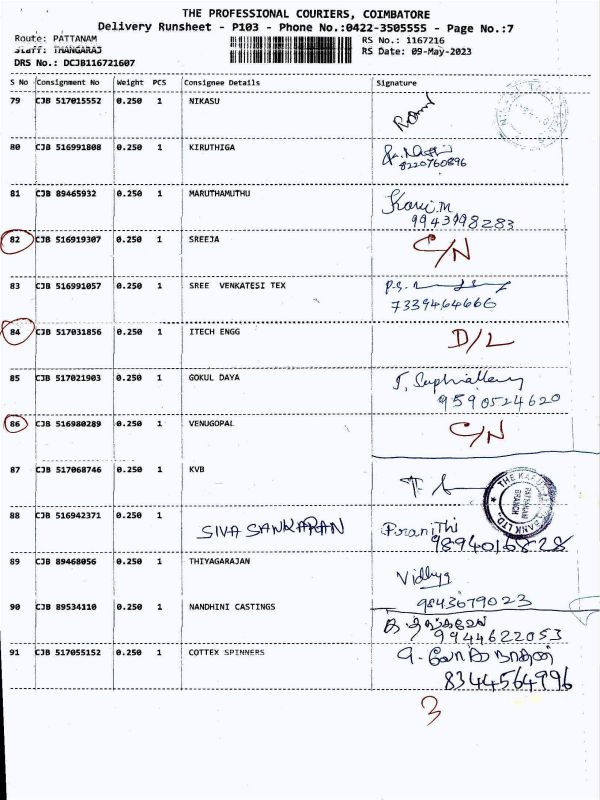 THE PROFESSIONAL COURIERS, COIMBATORE
Delivery Runsheet - P103 - Phone No.:0422-3505555 - Page No.:7
Route: PATTANAM RS No.: 1167216
Staff: THANGARAJ RS Date: 09-May-2023
DRS No.: DCJB116721607
S No Consignment No Weight PCS Consignee Details Signature
79 CJB 517015552 0.250 1 NIKASU
80 CJB 516991808 0.250 1 KIRUTHIGA
8220760896
81 CJB 89465932 0.250 1 MARUTHAMUTHU
9943998283
82 CJB 516919307 0.250 1 SREEJA C/N
83 CJB 516991057 0.250 1 SREE VENKATESI TEX
7339464666
84 CJB 517031856 0.250 1 ITECH ENGG D/L
85 CJB 517021903 0.250 1 GOKUL DAYA
9590524620
86 CJB 516980289 0.250 1 VENUGOPAL C/N
87 CJB 517068746 0.250 1 KVB
PATTANAM
BRANCH
88 CJB 516942371 0.250 1 SIVA SANKARAN Pranithi
9894016828
89 CJB 89468056 0.250 1 THIYAGARAJAN Vidhya
9843679023
90 CJB 89534110 0.250 1 NANDHINI CASTINGS
9944622053
91 CJB 517055152 0.250 1 COTTEX SPINNERS
8344564996
3